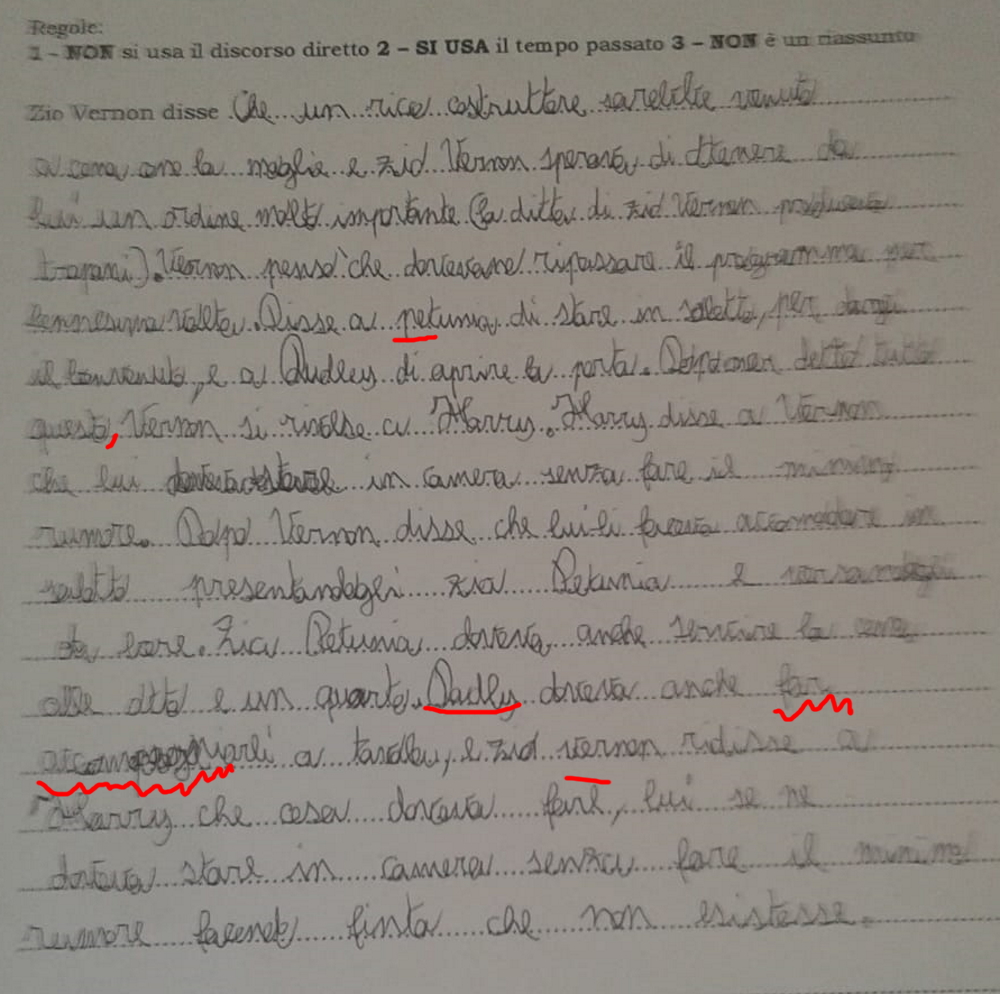 Regole:
1 - NON si usa il discorso diretto 2 – SI USA il tempo passato 3 – NON è un riassunto
Zio Vernon disse Che un rico costruttore sarebbe venuto
a cena con la moglie e zio Vernon sperava di ottenere da
lui un ordine molto importante (la ditta di zio Vernon produceva
trapani). Vernon pensò che dovessero ripassare il programma per
l'ennesima volta. Disse a petunia di stare in salotto, per dargli
il benvenuto, e a Dudley di aprire la porta. Dopo aver detto tutto
questo, Vernon si rivolse a Harry. Harry disse a Vernon
che lui doveva stare in camera senza fare il minimo
rumore. Dopo Vernon disse che lui li faceva accomodare in
salotto presentandogli zia Petunia e versandogli
da bere. Zia Petunia doveva, anche servire la cena
alle otto e un quarto. Dudly doveva anche far
accompagnarli a tavola, e zio vernon ridisse a
Harry che cosa doveva fare, lui se ne
doveva stare in camera senza fare il minimo
rumore facendo finta che non esistesse.